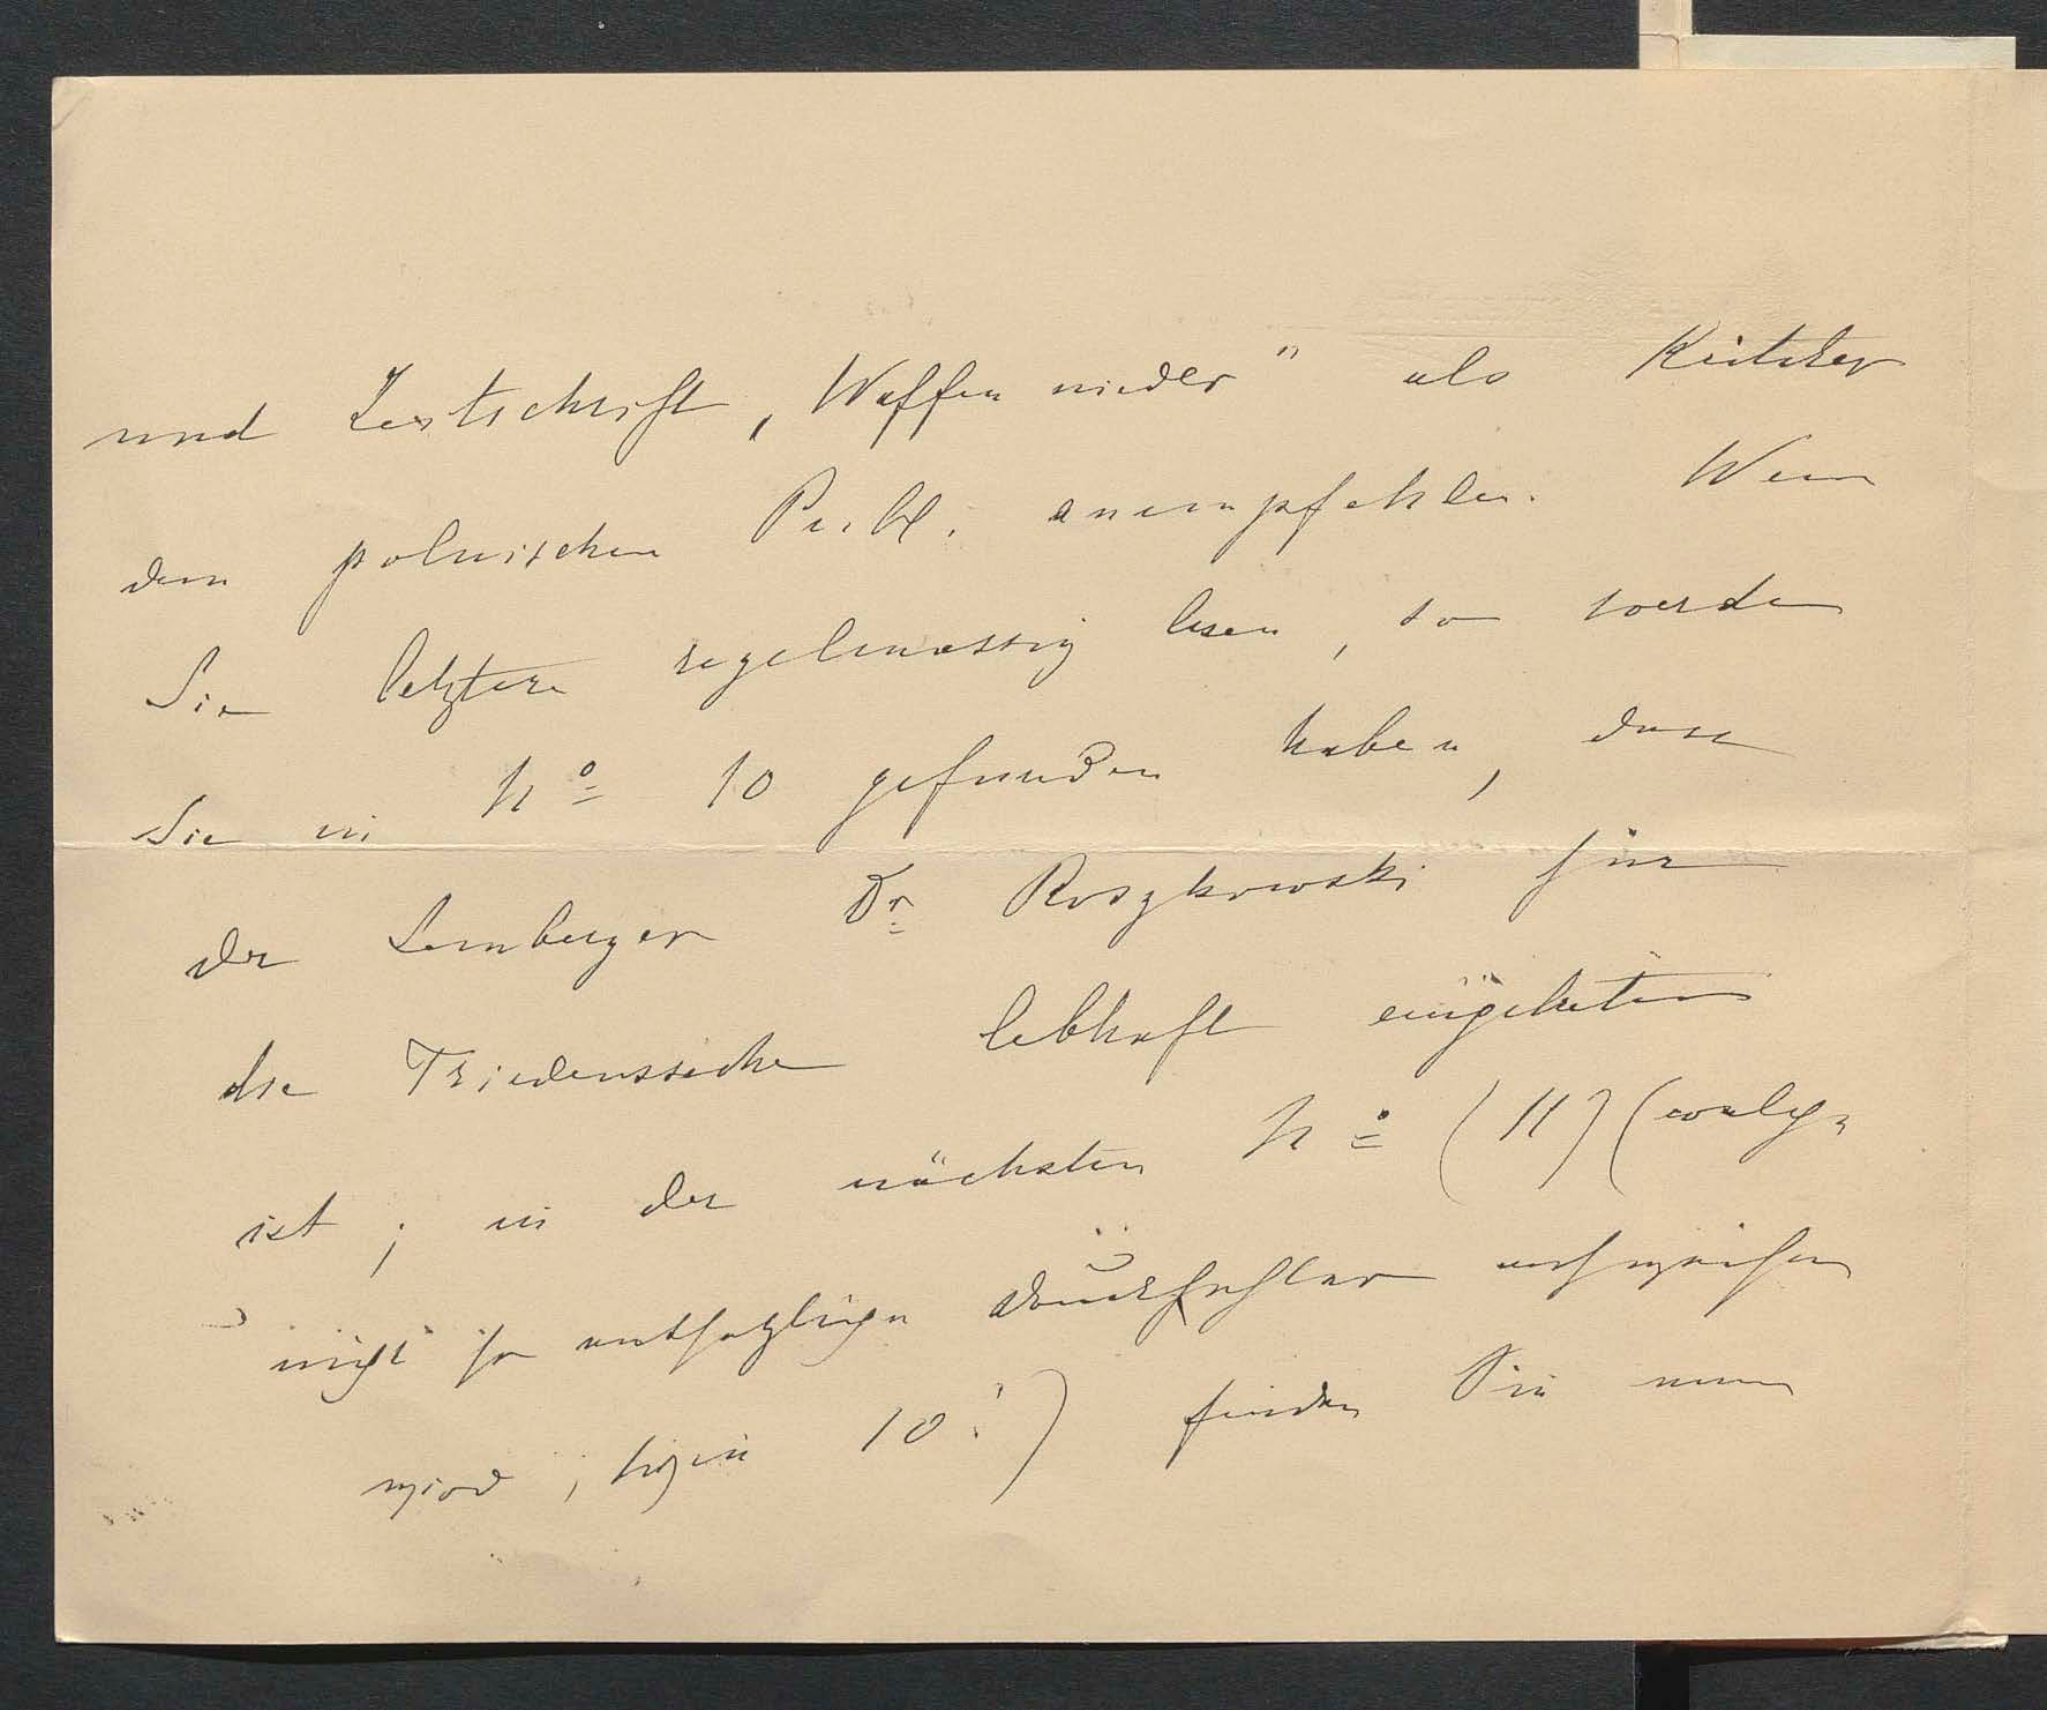 und Zeitschrift „Waffen nieder" als Kritiker
dem polnischen Publ. anempfehlen. Wenn
Sie letztere regelmässig lesen, so werden
Sie in No 10 gefunden haben, dass
der Lemberger Dr Roszkowski für
die Friedenssache lebhaft eingetreten
ist; in der nächsten No (11) (welche
nicht so entsetzliche Druckfehler aufweisen
wird, wie 10!) finden Sie nun